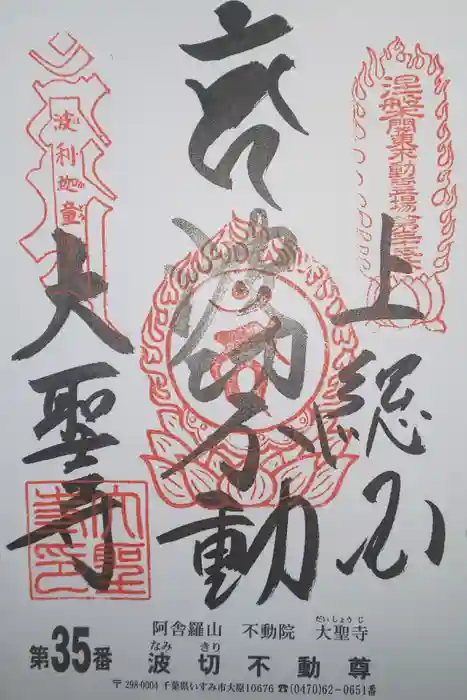 涅槃
関東不動霊場第
上総国
波切不動
波利迦童
大聖寺
だいしょうじ
阿舎羅山 不動院 大聖寺
なみ きり
第35番 波切不動尊
〒298-0004 千葉県いすみ市大原10676 ☎(0470)62-0651番